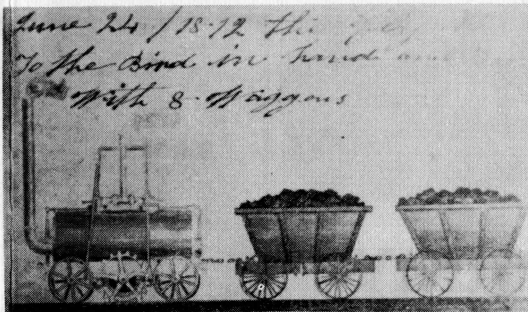 June 24 / 1812 the
To the Bird in hand
With 8 Waggons